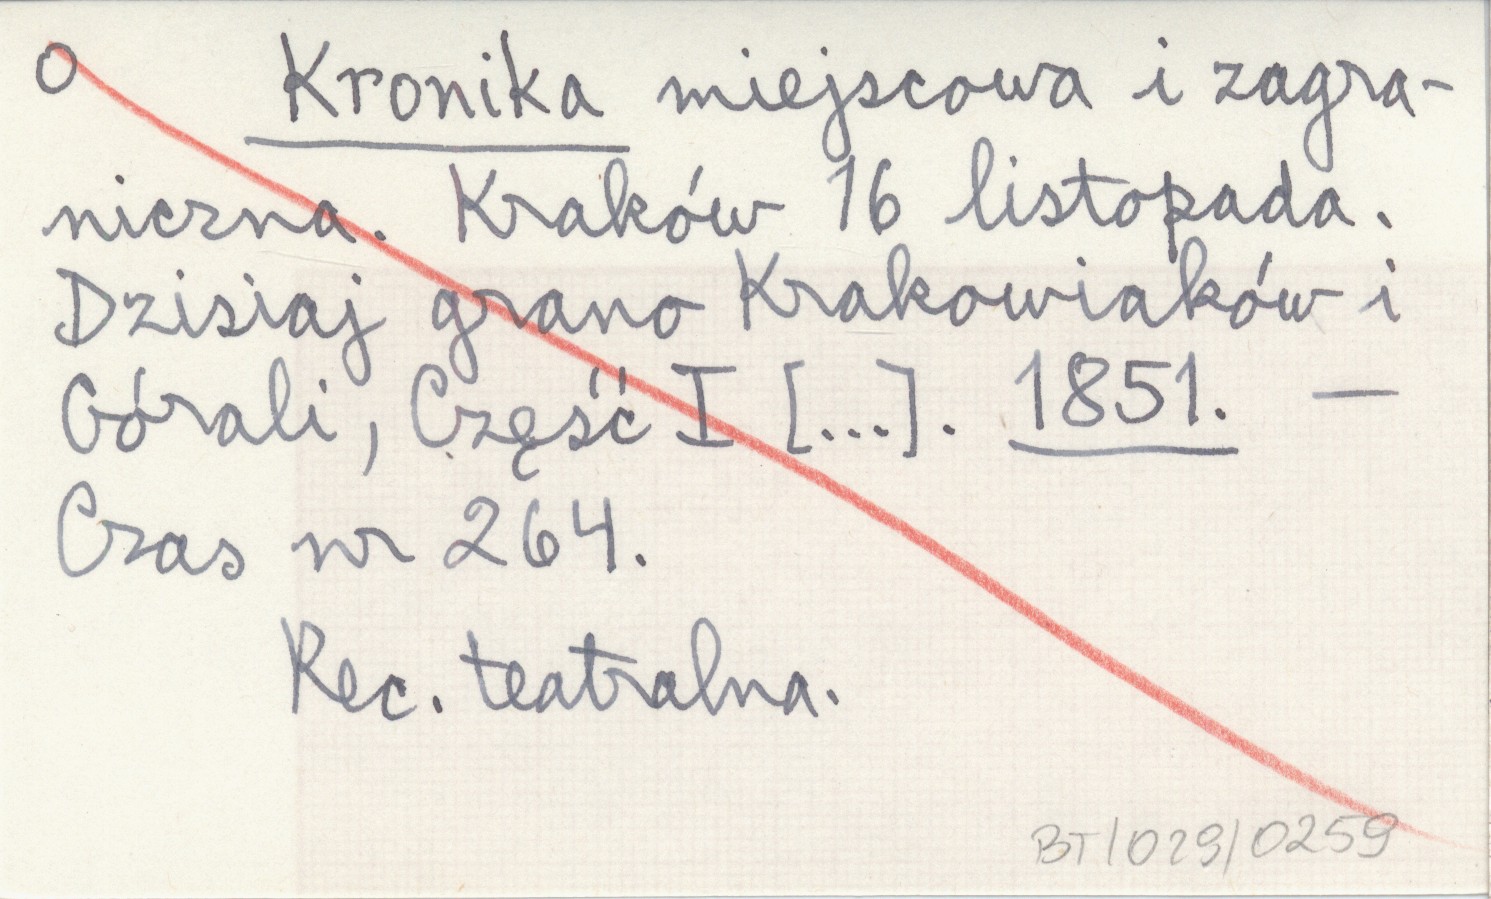 O Kronika miejscowa i zagra-
niczna. Kraków 16 listopada.
Dzisiaj grano Krakowiaków i
Górali, Część I [...]. 1851. —
Czas nr 264.
Rec. teatralna.
BT/029/0259